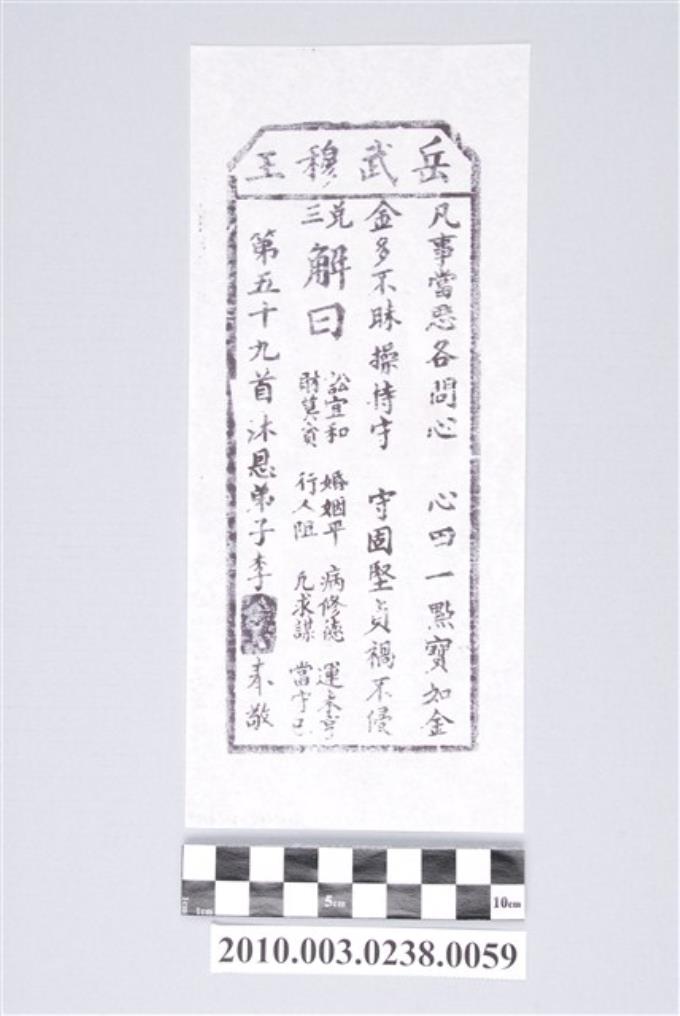 岳武穆王
凡事當思各問心 心田一點寶如金
金多不昧操持守 守固堅貞禍不侵
兌三
解曰
訟宜和 婚姻平 病修德 運未亨
財莫貪 行人阻 凡求謀 當守己
第五十九首沐恩弟子李 奉敬
1cm
5cm
10cm
2010.003.0238.0059